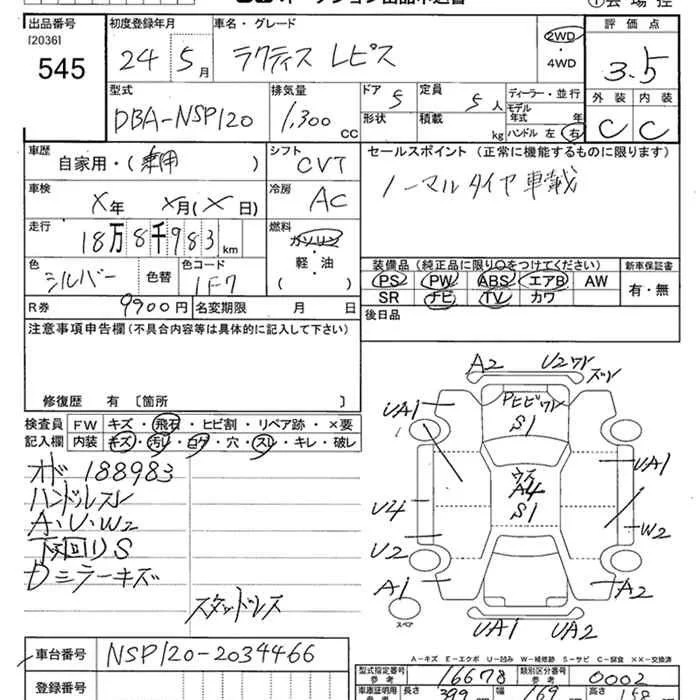 出品番号 初度登録年月 車名・グレード 評価点
[2036]
545
24 5月 ラクティス レピス 2WD ・ 4WD 3.5
型式 排気量 ドア 定員 ディーラー・並行 外装 内装
DBA-NSP120 1,300 cc 5 5人 モデル年式 年 C C
形状 積載 kg ハンドル 左 右
車歴 シフト セールスポイント (正常に機能するものに限ります)
自家用・( ) CVT ノーマルタイヤ車載
車検 冷房
X年 X月(X日) AC
走行 燃料
18万8千983km ガソリン
軽・油
( )
色 色替 色コード
シルバー 1F7
装備品 (純正品に限り○をつけてください) 新車保証書
PS PW ABS エアB AW 有・無
SR ナビ TV カワ
R券 9900円 名変期限 月 日 後日品
注意事項申告欄 (不具合内容等は具体的に記入して下さい)
修復歴 有 〔箇所 〕
検査員記入欄 FW キズ・飛石・ヒビ割・リペア跡・×要
内装 キズ・汚れ・コゲ・穴・スレ・キレ・破レ
オド 188983
ハンドルスレ
A・U・W2
下回りS
Dミラーキズ
スタッドレス
A2 U2ワレ ズレ
UA1 PヒビワレS1
UA1
ウスA4 S1
U4 W2
U2
A1 A2
スペア
UA1 UA2
A-キズ E-エクボ U-凹み W-補修跡 S-サビ C-腐食 XX-交換済
車台番号 NSP120-2034466
登録番号
型式指定番号 参考 16678 類別区分番号 参考 0002
車庫証明用 参考 長さ 399 幅 169 高さ 158